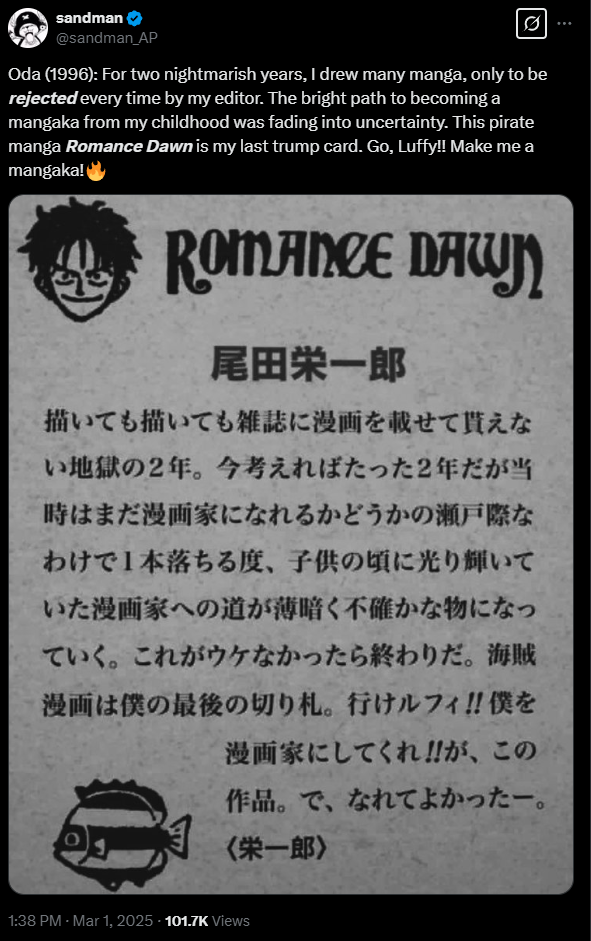 sandman
@sandman_AP
Oda (1996): For two nightmarish years, I drew many manga, only to be
rejected every time by my editor. The bright path to becoming a
mangaka from my childhood was fading into uncertainty. This pirate
manga Romance Dawn is my last trump card. Go, Luffy!! Make me a
mangaka!🔥
ROMANCE DAWN
尾田栄一郎
描いても描いても雑誌に漫画を載せて貰えな
い地獄の2年。今考えればたった2年だが当
時はまだ漫画家になれるかどうかの瀬戸際な
わけで1本落ちる度、子供の頃に光り輝いて
いた漫画家への道が薄暗く不確かな物になっ
ていく。これがウケなかったら終わりだ。海賊
漫画は僕の最後の切り札。行けルフィ!!僕を
漫画家にしてくれ!!が、この
作品。で、なれてよかったー。
〈栄一郎〉
1:38 PM · Mar 1, 2025 · 101.7K Views